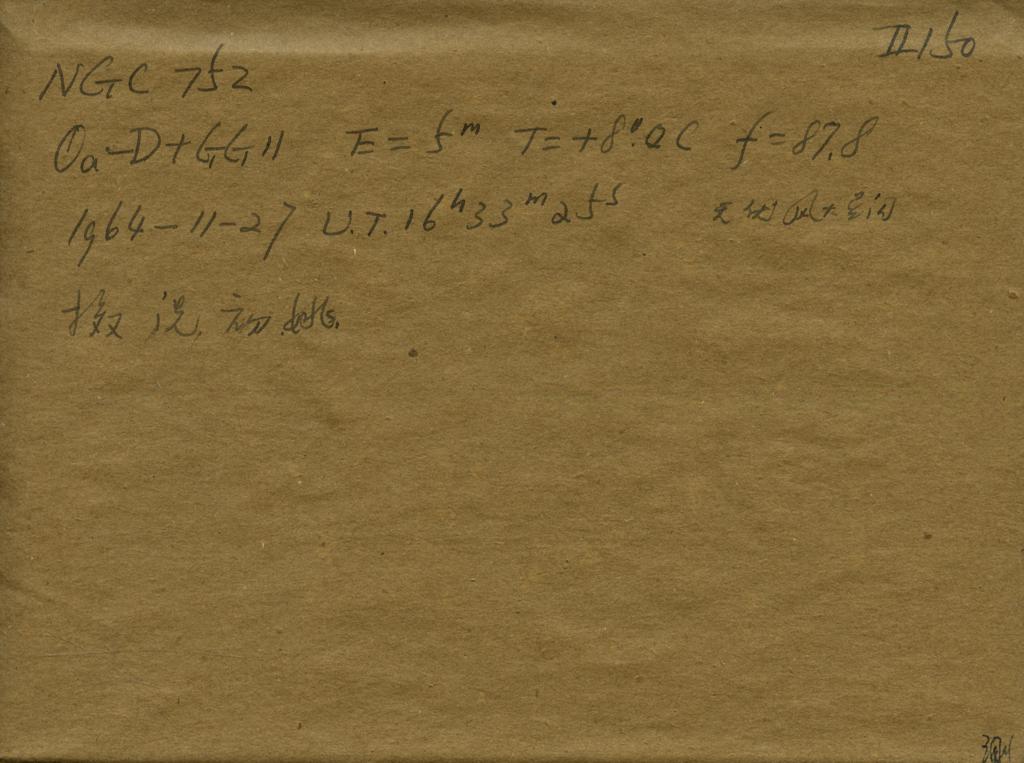 II150
NGC 752
Oa-D+GG11 E=5ᵐ T=+8°.0C f=87.8
1964-11-27 U.T. 16ʰ33ᵐ25ˢ 风大